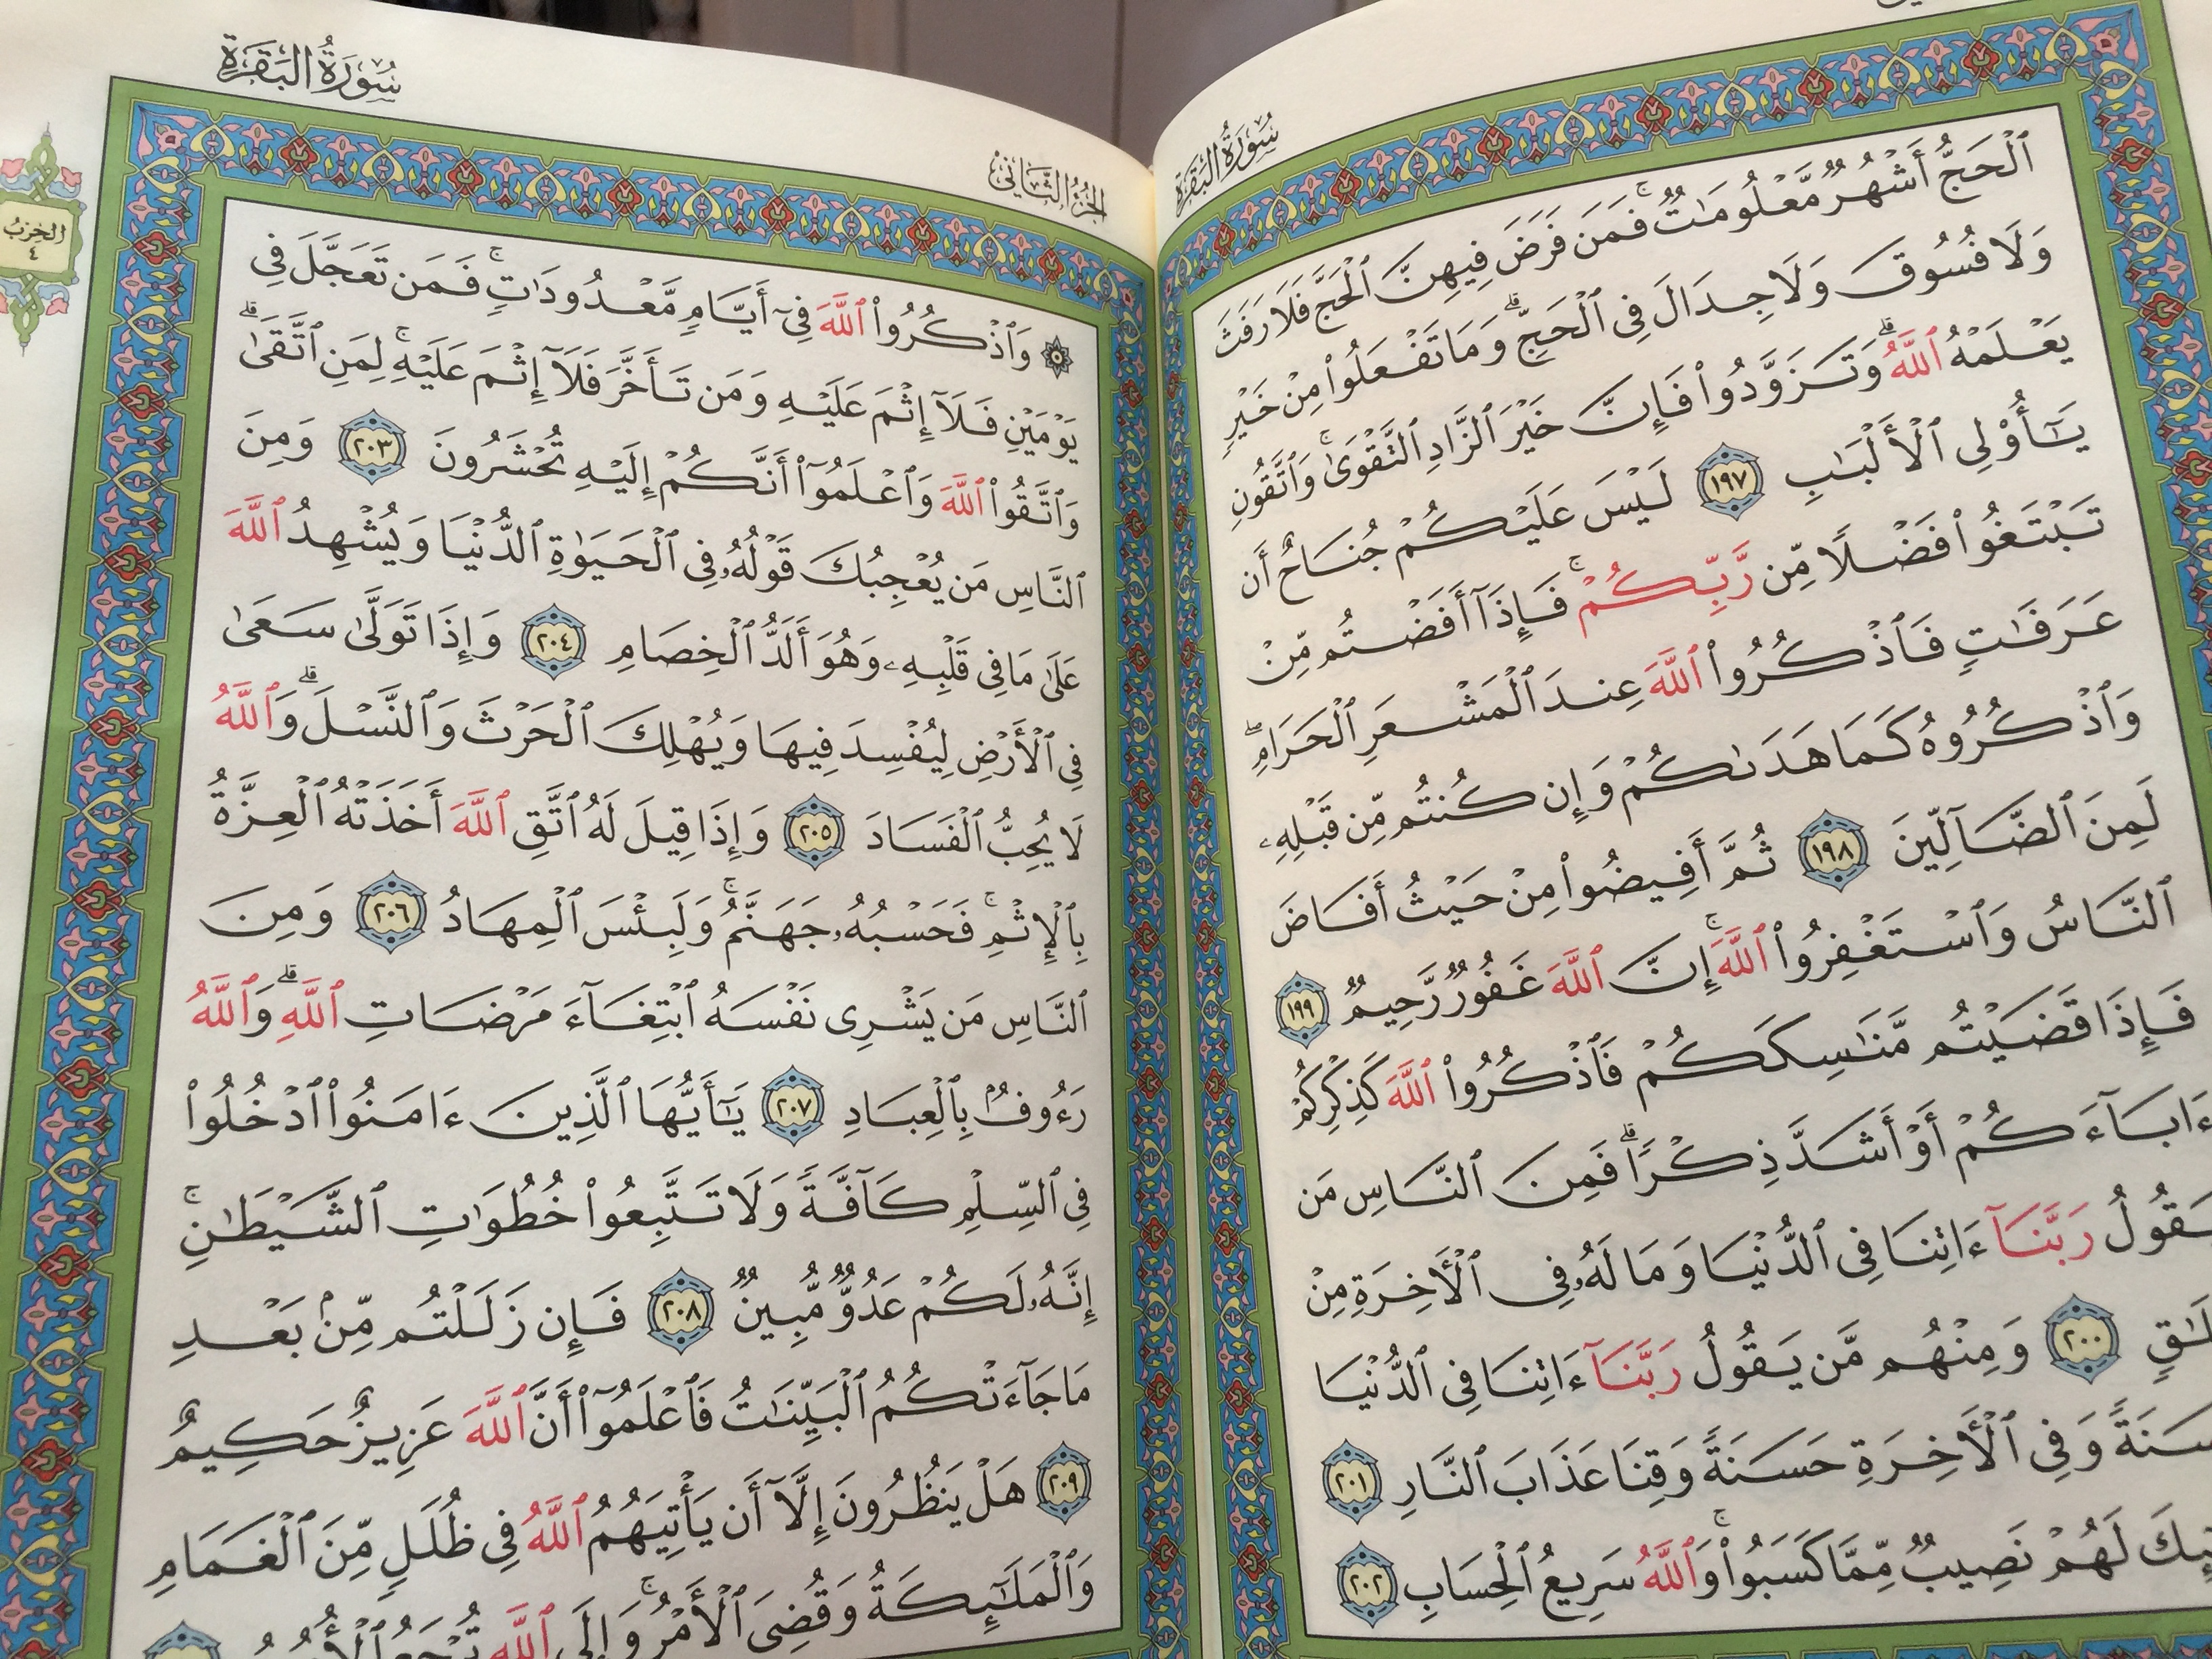 سُورَةُ البَقَرَةِ
ٱلْحَجُّ أَشْهُرٌ مَّعْلُومَٰتٌ ۚ فَمَن فَرَضَ فِيهِنَّ ٱلْحَجَّ فَلَا رَفَثَ
وَلَا فُسُوقَ وَلَا جِدَالَ فِى ٱلْحَجِّ ۗ وَمَا تَفْعَلُوا۟ مِنْ خَيْرٍ
يَعْلَمْهُ ٱللَّهُ ۗ وَتَزَوَّدُوا۟ فَإِنَّ خَيْرَ ٱلزَّادِ ٱلتَّقْوَىٰ ۚ وَٱتَّقُونِ
يَٰٓأُو۟لِى ٱلْأَلْبَٰبِ ١٩٧ لَيْسَ عَلَيْكُمْ جُنَاحٌ أَن
تَبْتَغُوا۟ فَضْلًا مِّن رَّبِّكُمْ ۚ فَإِذَآ أَفَضْتُم مِّنْ
عَرَفَٰتٍ فَٱذْكُرُوا۟ ٱللَّهَ عِندَ ٱلْمَشْعَرِ ٱلْحَرَامِ ۖ
وَٱذْكُرُوهُ كَمَا هَدَىٰكُمْ وَإِن كُنتُم مِّن قَبْلِهِۦ
لَمِنَ ٱلضَّآلِّينَ ١٩٨ ثُمَّ أَفِيضُوا۟ مِنْ حَيْثُ أَفَاضَ
ٱلنَّاسُ وَٱسْتَغْفِرُوا۟ ٱللَّهَ ۚ إِنَّ ٱللَّهَ غَفُورٌ رَّحِيمٌ ١٩٩
فَإِذَا قَضَيْتُم مَّنَٰسِكَكُمْ فَٱذْكُرُوا۟ ٱللَّهَ كَذِكْرِكُمْ
ءَابَآءَكُمْ أَوْ أَشَدَّ ذِكْرًا ۗ فَمِنَ ٱلنَّاسِ مَن
يَقُولُ رَبَّنَآ ءَاتِنَا فِى ٱلدُّنْيَا وَمَا لَهُۥ فِى ٱلْأَخِرَةِ مِنْ
٢٠٠ وَمِنْهُم مَّن يَقُولُ رَبَّنَآ ءَاتِنَا فِى ٱلدُّنْيَا
وَفِى ٱلْأَخِرَةِ حَسَنَةً وَقِنَا عَذَابَ ٱلنَّارِ ٢٠١
لَهُمْ نَصِيبٌ مِّمَّا كَسَبُوا۟ ۚ وَٱللَّهُ سَرِيعُ ٱلْحِسَابِ ٢٠٢
الجُزْءُ الثَّانِي
سُورَةُ البَقَرَةِ
الحِزْبُ
٤
۞ وَٱذْكُرُوا۟ ٱللَّهَ فِىٓ أَيَّامٍ مَّعْدُودَٰتٍ ۚ فَمَن تَعَجَّلَ فِى
يَوْمَيْنِ فَلَآ إِثْمَ عَلَيْهِ وَمَن تَأَخَّرَ فَلَآ إِثْمَ عَلَيْهِ ۚ لِمَنِ ٱتَّقَىٰ ۗ
وَٱتَّقُوا۟ ٱللَّهَ وَٱعْلَمُوٓا۟ أَنَّكُمْ إِلَيْهِ تُحْشَرُونَ ٢٠٣ وَمِنَ
ٱلنَّاسِ مَن يُعْجِبُكَ قَوْلُهُۥ فِى ٱلْحَيَوٰةِ ٱلدُّنْيَا وَيُشْهِدُ ٱللَّهَ
عَلَىٰ مَا فِى قَلْبِهِۦ وَهُوَ أَلَدُّ ٱلْخِصَامِ ٢٠٤ وَإِذَا تَوَلَّىٰ سَعَىٰ
فِى ٱلْأَرْضِ لِيُفْسِدَ فِيهَا وَيُهْلِكَ ٱلْحَرْثَ وَٱلنَّسْلَ ۗ وَٱللَّهُ
لَا يُحِبُّ ٱلْفَسَادَ ٢٠٥ وَإِذَا قِيلَ لَهُ ٱتَّقِ ٱللَّهَ أَخَذَتْهُ ٱلْعِزَّةُ
بِٱلْإِثْمِ ۚ فَحَسْبُهُۥ جَهَنَّمُ ۚ وَلَبِئْسَ ٱلْمِهَادُ ٢٠٦ وَمِنَ
ٱلنَّاسِ مَن يَشْرِى نَفْسَهُ ٱبْتِغَآءَ مَرْضَاتِ ٱللَّهِ ۗ وَٱللَّهُ
رَءُوفٌۢ بِٱلْعِبَادِ ٢٠٧ يَٰٓأَيُّهَا ٱلَّذِينَ ءَامَنُوا۟ ٱدْخُلُوا۟
فِى ٱلسِّلْمِ كَآفَّةً وَلَا تَتَّبِعُوا۟ خُطُوَٰتِ ٱلشَّيْطَٰنِ ۚ
إِنَّهُۥ لَكُمْ عَدُوٌّ مُّبِينٌ ٢٠٨ فَإِن زَلَلْتُم مِّنۢ بَعْدِ
مَا جَآءَتْكُمُ ٱلْبَيِّنَٰتُ فَٱعْلَمُوٓا۟ أَنَّ ٱللَّهَ عَزِيزٌ حَكِيمٌ
٢٠٩ هَلْ يَنظُرُونَ إِلَّآ أَن يَأْتِيَهُمُ ٱللَّهُ فِى ظُلَلٍ مِّنَ ٱلْغَمَامِ
وَٱلْمَلَٰٓئِكَةُ وَقُضِىَ ٱلْأَمْرُ ۚ وَإِلَى ٱللَّهِ تُرْجَعُ ٱلْأُمُورُ